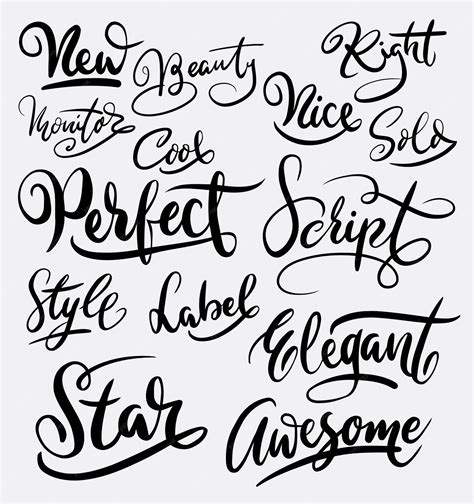 New
Beauty
Right
Monitor
Cool
Nice
Solo
Perfect
Script
Style
Label
Elegant
Star
Awesome